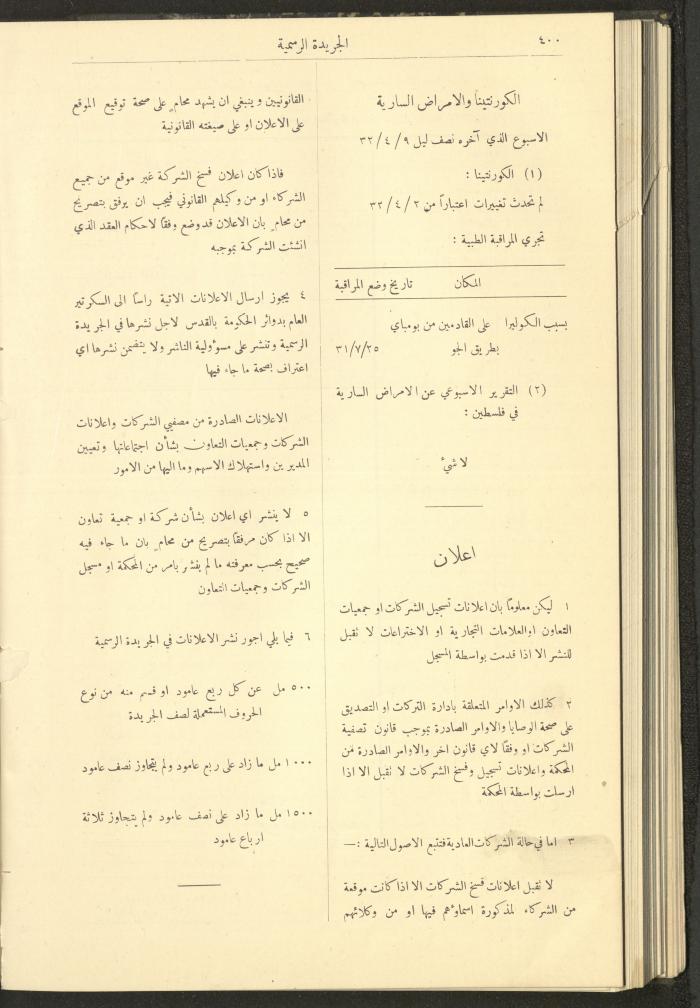 ٤٠٠
الجريدة الرسمية
الكورنتينا والامراض السارية
الاسبوع الذي آخره نصف ليل ٩ / ٤ / ٣٢
(١) الكورنتينا :
لم تحدث تغييرات اعتباراً من ٢ / ٤ / ٣٢
تجري المراقبة الطبية :
المكان تاريخ وضع المراقبة
بسبب الكوليرا على القادمين من بومباي
بطريق الجو ٣١/٧/٢٥
(٢) التقرير الاسبوعي عن الامراض السارية
في فلسطين :
لا شيء
اعلان
١ ليكن معلوماً بان اعلانات تسجيل الشركات او جمعيات
التعاون او العلامات التجارية او الاختراعات لا تقبل
للنشر الا اذا قدمت بواسطة المسجل
٢ كذلك الاوامر المتعلقة بادارة التركات او التصديق
على صحة الوصايا والاوامر الصادرة بموجب قانون تصفية
الشركات او وفقاً لاي قانون اخر والاوامر الصادرة من
المحكمة واعلانات تسجيل وفسخ الشركات لا تقبل الا اذا
ارسلت بواسطة المحكمة
٣ اما في حالة الشركات العادية فتتبع الاصول التالية :—
لا تقبل اعلانات فسخ الشركات الا اذا كانت موقعة
من الشركاء المذكورة اسماؤهم فيها او من وكلائهم
القانونيين وينبغي ان يشهد محام على صحة توقيع الموقع
على الاعلان او على صيغته القانونية
فاذا كان اعلان فسخ الشركة غير موقع من جميع
الشركاء او من وكيلهم القانوني فيجب ان يرفق بتصريح
من محام بان الاعلان قد وضع وفقاً لاحكام العقد الذي
انشئت الشركة بموجبه
٤ يجوز ارسال الاعلانات الاتية راساً الى السكرتير
العام بدوائر الحكومة بالقدس لاجل نشرها في الجريدة
الرسمية وتنشر على مسؤولية الناشر ولا يتضمن نشرها اي
اعتراف بصحة ما جاء فيها
الاعلانات الصادرة من مصفيي الشركات واعلانات
الشركات وجمعيات التعاون بشأن اجتماعاتها وتعيين
المديرين واستهلاك الاسهم وما اليها من الامور
٥ لا ينشر اي اعلان بشأن شركة او جمعية تعاون
الا اذا كان مرفقاً بتصريح من محام بان ما جاء فيه
صحيح بحسب معرفته ما لم ينشر بامر من المحكمة او مسجل
الشركات وجمعيات التعاون
٦ فيما يلي اجور نشر الاعلانات في الجريدة الرسمية
٥٠٠ مل عن كل ربع عامود او قسم منه من نوع
الحروف المستعملة لصف الجريدة
١٠٠٠ مل ما زاد على ربع عامود ولم يتجاوز نصف عامود
١٥٠٠ مل ما زاد على نصف عامود ولم يتجاوز ثلاثة
ارباع عامود